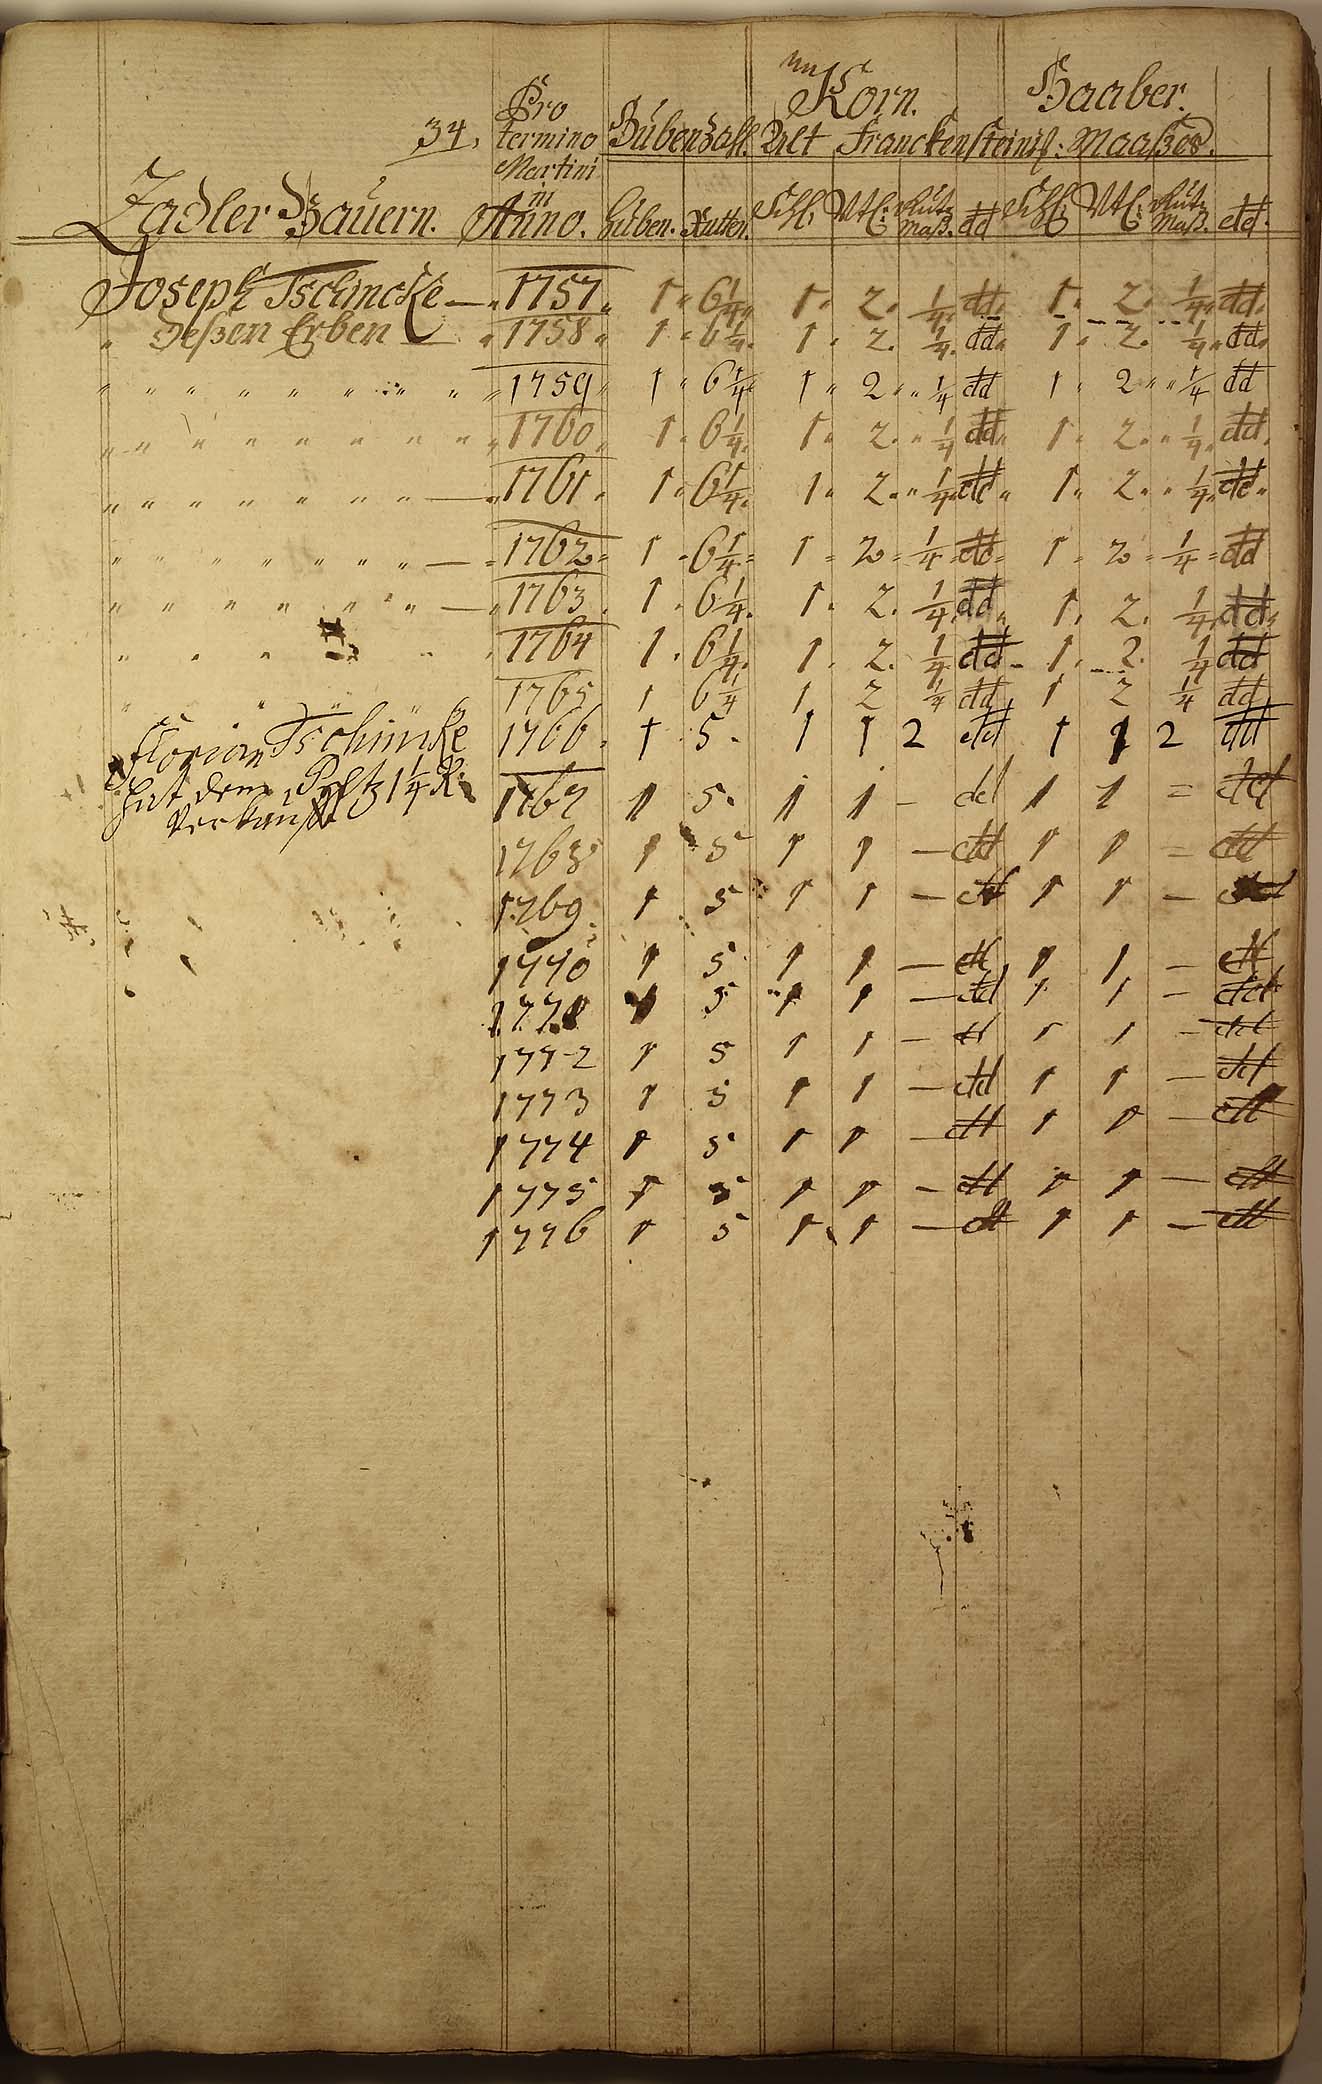 34.
Pro termino Martini in Anno.
Hubenzahl.
An Korn. Haaber.
Alt Franckensteinisch: Maaßes.
Zadler Bauern. Huben. Rutten. Schl. Vtl: Maß. dd Schfl. Vtl: Maß. dd.
Joseph Tschincke — " 1757 " 1 " 6 1/4 " 1 " 2 " 1/4 " dd " 1 " 2 " 1/4 " dd "
" deßen Erben — " 1758 " 1 " 6 1/4 " 1 " 2 " 1/4 " dd " 1 " 2 " 1/4 " dd "
" " " " " " " " " 1759 1 " 6 1/4 " 1 " 2 " " 1/4 dd 1 " 2 " " 1/4 dd
" " " " " " " " " 1760 " 1 " 6 1/4 " 1 " 2 " " 1/4 dd " 1 " 2 " " 1/4 " dd "
" " " " " " " " — " 1761 " 1 " 6 1/4 " 1 " 2 " " 1/4 " dd " 1 " 2 " " 1/4 " dd "
" " " " " " " " — " 1762 " 1 " 6 1/4 " 1 " 2 " 1/4 " dd " 1 " 2 " 1/4 " dd
" " " " " " " — " 1763 " 1 " 6 1/4 " 1 " 2 " 1/4 " dd " 1 " 2 " 1/4 " dd "
" " " " " 1764 1 " 6 1/4 " 1 " 2 " 1/4 " dd " 1 " 2 " 1/4 dd
" " " " 1765 1 6 1/4 1 2 1/4 dd 1 2 1/4 dd
Florian Tschincke 1766 " 1 5 " 1 1 2 dd 1 1 2 dd
hat dem 1 1/4 R: 1767 1 5 " 1 1 — dd 1 1 = dd
verkaufft
1768 1 5 1 1 — dd 1 1 = dd
1769 1 5 1 1 — dd 1 1 — dd
1770 1 5 1 1 — dd 1 1 — dd
1771 1 5 1 1 — dd 1 1 — dd
1772 1 5 1 1 — dd 1 1 — dd
1773 1 5 1 1 — dd 1 1 — dd
1774 1 5 1 1 — dd 1 1 — dd
1775 1 5 1 1 — dd 1 1 — dd
1776 1 5 1 1 — dd 1 1 — dd